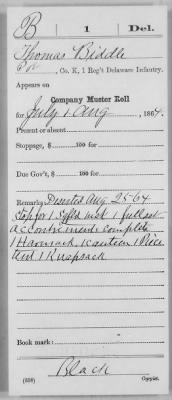 B 1 Del.
Thomas Biddle
Pvt, Co. K, 1 Reg't Delaware Infantry.
Appears on
Company Muster Roll
for July & Aug, 1864.
Present or absent
Stoppage, $ 100 for
Due Gov't, $ 100 for
Remarks: Deserted Aug 25 64
Stop for 1 Spfld musk 1 full set
accoutrements complete
1 Haversack 1 canteen 1 Piece
tent 1 Knapsack
Book mark:
Black
(358) Copyist.